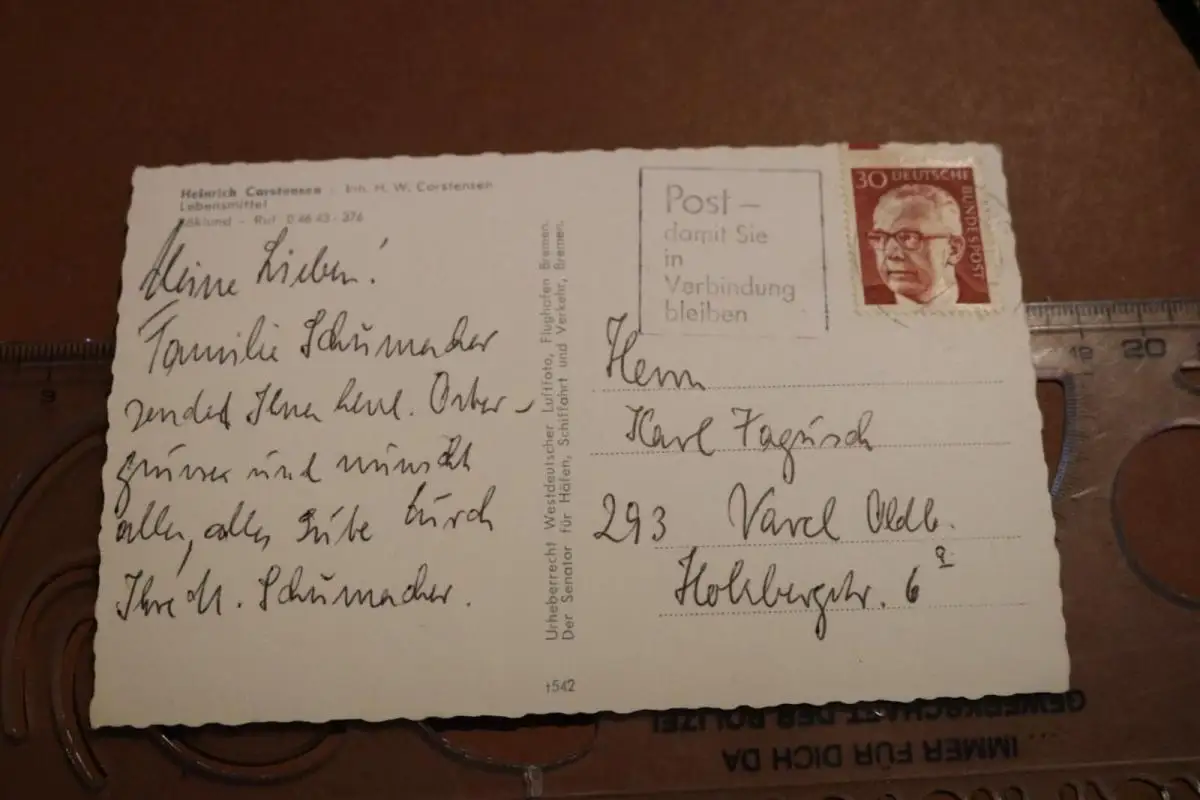 Heinrich Carstensen · Inh. H. W. Carstensen
Lebensmittel
Böklund - Ruf 0 46 43 - 376
Meine Lieben!
Familie Schumacher
sendet Ihnen herzl. Oster-
grüsse und wünscht
allen, alles Gute durch
Ihre M. Schumacher.
Urheberrecht Westdeutscher Luftfoto, Flughafen Bremen.
Der Senator für Häfen, Schiffahrt und Verkehr, Bremen.
t542
Post –
damit Sie
in
Verbindung
bleiben
30 DEUTSCHE
BUNDESPOST
Herrn
Karl
293 Varel Oldb.
6 a
9
19 20
GEWERKSCHAFT DER POLIZEI
... IMMER FÜR DICH DA